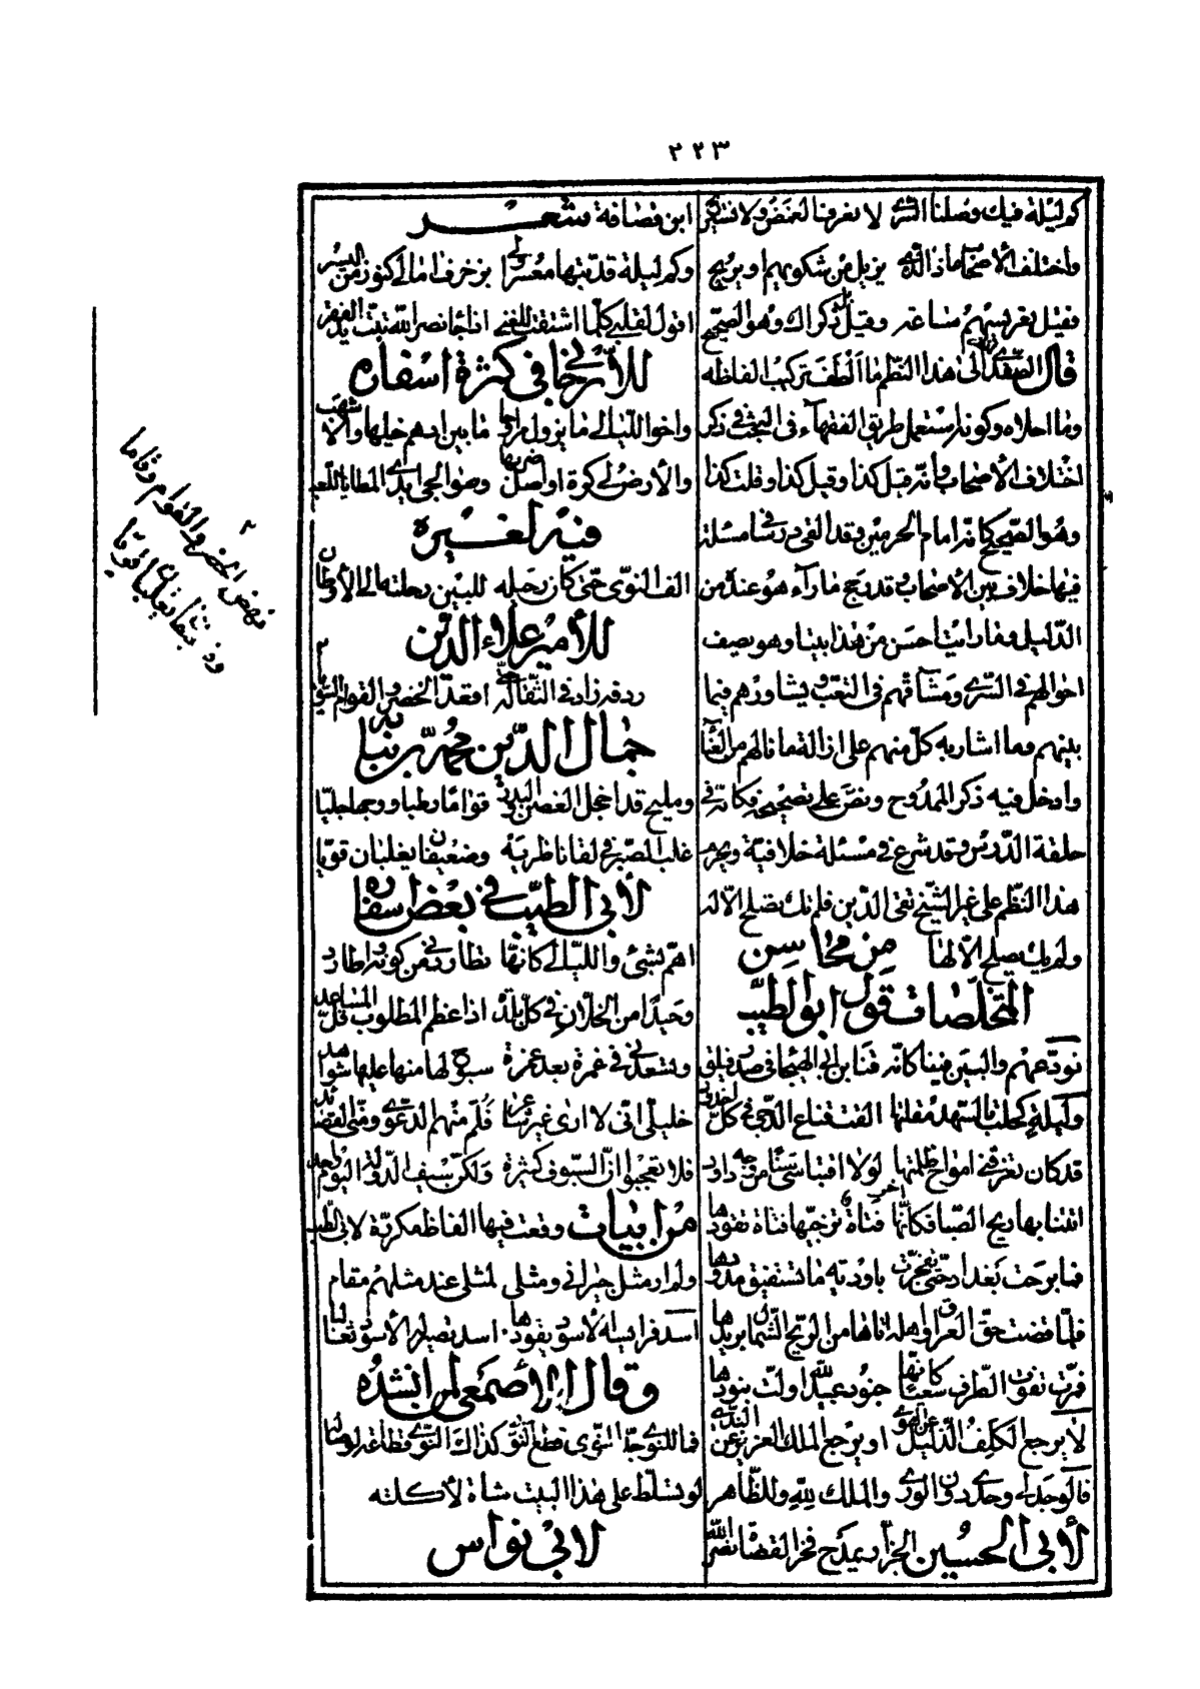 ٢٢٣
كم ليلة فيك وصلنا السرى لا نعرف الغمض ولا نستريح
واختلف الأصحاب ماذا الذي يزيل من شكويهم او يريح
فقيل تعريسهم ساعة وقيل بل ذكراك وهو الصحيح
قال الصفدي الى هذا النظم ما ألطف تركيب الفاظه
وما احلاه وكونه استعمل طريق الفقهاء في البحث في ذكر
اختلاف الأصحاب وانه قيل كذا وقيل كذا وقلت كذا
وهو الصحيح كانه امام الحرمين وقد القى درسا في مسئلة
فيها خلاف بين الأصحاب قد رجح ما رآه هو عنده من
الدليل وما رايت احسن من هذا بيتا وهو يصف
احوالهم في السرى ومشاقهم في التعب ويشاورهم فيما
بينهم وما اشار به كل منهم على ازالة ما نالهم من العنا
وادخل فيه ذكر الممدوح ونص على تصحيحه فكانه في
حلقة الدروس وقد شرع في مسئلة خلافية ويحرم
هذا النظم على غير الشيخ تقي الدين فلم تك تصلح الا له
ولم يك يصلح الا لها من محاسن
المتخلصات قول ابو الطيب
نودعهم والبين فينا كانه قنا ابن ابي الهيجا في صدر فيلق
وليلة كحلت بالسهد مقلتها القت قناع الدجى في كل اخدود
قد كان تغرقني امواج ظلمتها لولا اقتباسي سنا من وجه داود
اخر
اتتنا بها ريح الصبا فكأنها فتاة ترجيها فتاة تقودها
فما برحت بغداد حتى تفجرت باودية ما تستفيق مدودها
فلما قضت حق العراق واهله اتاها من الريح الشمال بريدها
فمرت تفوت الطرف سعيا كانها جنود عبيد الله ولت بنودها
لا يرجع الكلف الذليل عن الهوى او يرجع الملك العزيز عن الندى
فالوجد لي وحدي دون الورى والملك لله وللظاهر
لأبي الحسين الجزار يمدح فخر القضاة نصر الله
ابن قصاقة شعر
وكم ليلة قد بتها معسرا لي بزخرف امالي كنوز من اليسر
اقول لقلبي كلما اشتقت للغنى اذا جا نصر الله تبت يد الفقر
للأرجاني في كثرة اسفاره
واخو الليالي ما يزول مراوحا ما بين ادهم خيلها والأشهب
والأرض لي كرة اواصل ضربها وصوالجي ايدي المطايا اللعب
فيه لغيره
الف النوى حتى كان رحيله للبين رحلته الى الأوطان
للأمير علاء الدين
ردفه زاد في الثقالة حتى اقعد الخصر والقوام السويا
جمال الدين محمد بن نباته
ومليح قد اخجل الغصن والبدر قواما رطبا ووجها جليا
غلب الصبر في لقانا ناظريه وضعيفان يغلبان قويا
لأبي الطيب في بعض اسفاره
اهم بشئ والليالي كانها تطاردني عن كونه واطارد
وحيدا من الخلان في كل بلدة اذا عظم المطلوب قل المساعد
وتسعدني في غمرة بعد غمرة سبوح لها منها عليها شواهد
خليلي اني لا ارى غير شاعر فلم منهم الدعوى ومني القصائد
فلا تعجبوا ان السيوف كثيرة ولكن سيف الدولة اليوم واحد
من ابيات وقعت فيها الفاظ مكررة لابي الطيب
ولم ار مثل جيراني ومثلي لمثلي عند مثلهم مقام
اسد فرايسه الأسود يقودها اسد تصير له الأسود ثعالبا
وقال الأصمعي لمن انشده
فما للنوى جد النوى قطع النوى كذاك النوى قطاعة لوصال
لو تسلط على هذا البيت شاة لأكلته
لابي نواس
٢ نهض الخصر والقوام وقاما
وضعيفان يغلبان قويا